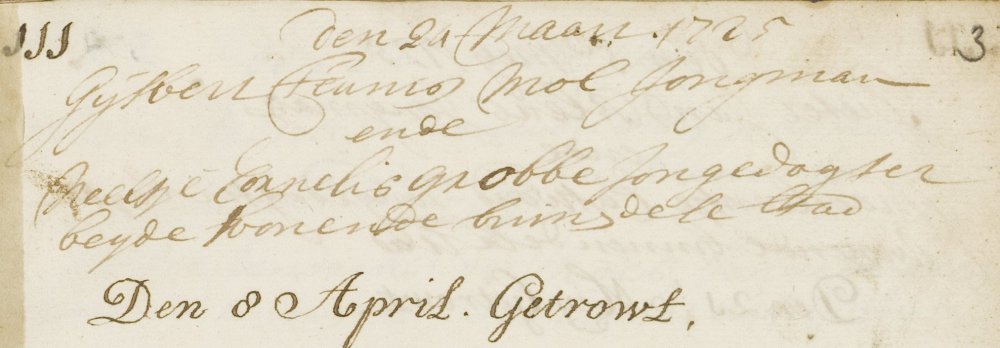 JJJ den 24 Maart 1725 3
Gijsbert Teunis Mol Jongman
ende
Neeltje Cornelis Grobbe Jongedogter
beyde wonende binnen dese Stad
Den 8 April. Getrowt,